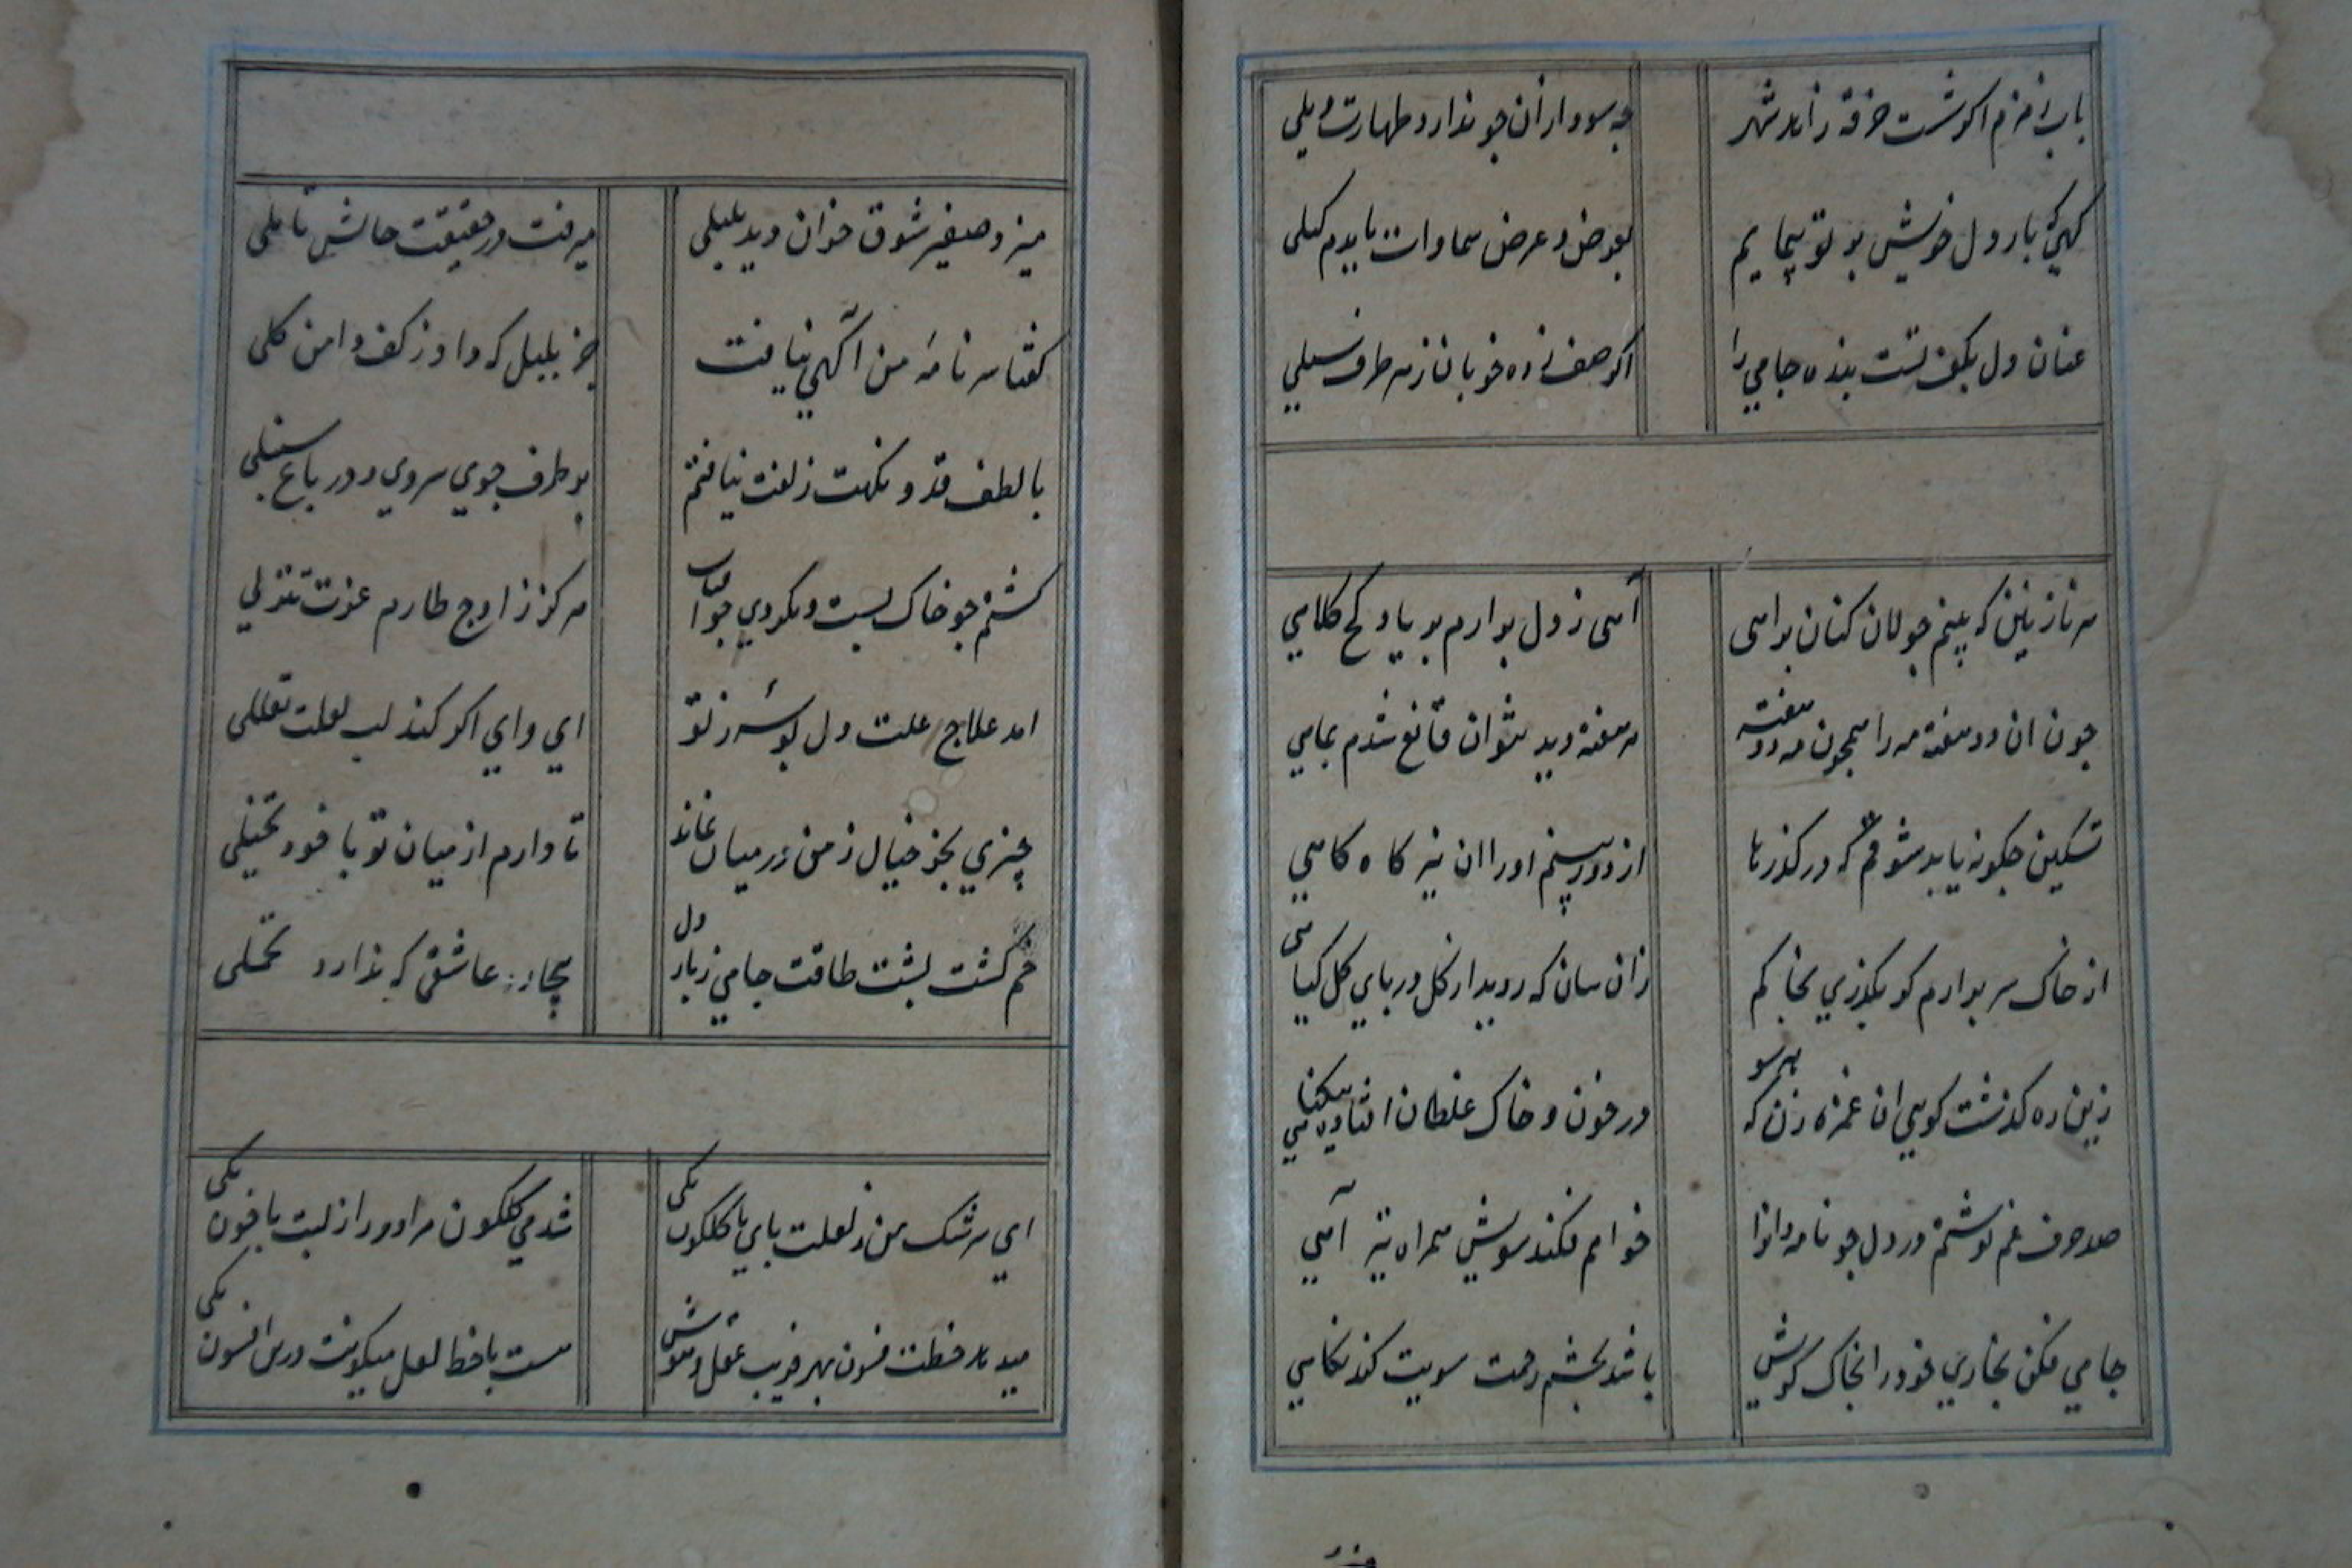 باب زمزم اکر شست خرقه زاهد شهر چه سود ازان چو ندارد طهارت ذیلی
کهی که بار دل خویش بر تو پیمایم بعوض و عرض سماوات بایدم کیلی
عنان دل بکف تست بنده جامی را اکر صف زده خوبان ز هر طرف خیلی
هر نازنین که بینم جولان کنان براهی آهی ز دل برارم بر یاد کج کلاهی
چون ان دو هفته مه را همچون مه دو هفته هر هفته دید نتوان قانع شدم بماهی
تسکین چکونه یابد شوقم که در کذرها از دور بینم او را ان نیز کاه کاهی
از خاک سر برارم کر بکذری بخاکم زان سان که روید از کل در پای کل کیاهی
زین ره کذشت کویی ان غمزه زن که هر سو در خون و خاک غلطان افتاده بیکناهی
صد حرف غم نوشتم در دل چو نامه وانرا خواهم فکند سویش همراه تیر آهی
جامی فکن بخاری خود را بخاک کویش باشد بچشم رحمت سویت کند نکاهی
میزد صفیر شوق خوان دید بلبلی میرفت در حقیقت حالش تاملی
کفتا سر نامه من آکهی نیافت جز بلبل که داد ز کف دامن کلی
با لطف قد و نکهت زلفت نیافتم بر طرف جوی سروی و در باغ سنبلی
کشتم چو خاک پست و نکردی چو افتاب هرکز ز اوج طارم عزت تنزلی
امد علاج علت دل بوسه ز تو ای وای اکر کند لب لعلت تعللی
چیزی بجز خیال ز من در میان نماند تا دارم از میان تو با خود تخیلی
خم کشت پشت طاقت جامی ز بار دل بیچاره عاشقی که ندارد تحملی
ای سرشک من ز لعلت با می کلکون یکی شد می کلکون مرا دور از لبت با خون یکی
میدمد خطت فسون بهر فریب عقل و هوش هست با خط لعل میکونت درین افسون یکی